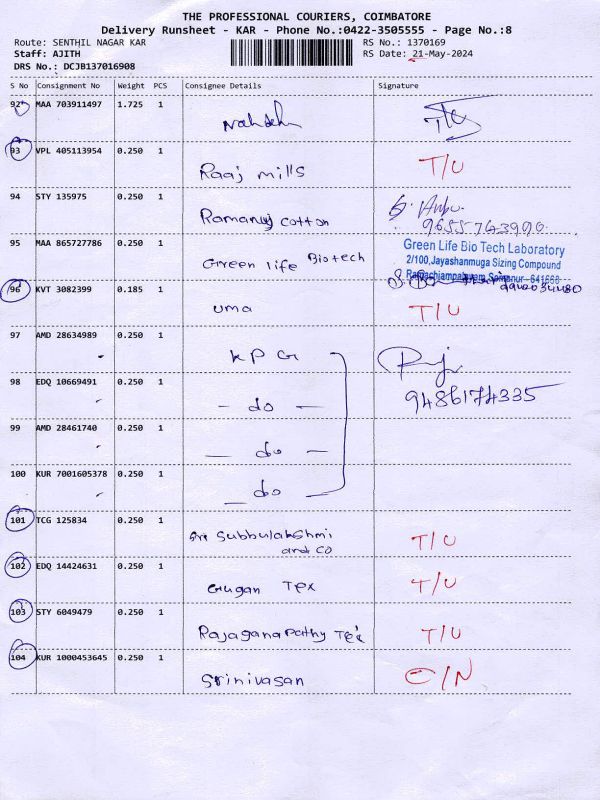 THE PROFESSIONAL COURIERS, COIMBATORE
Delivery Runsheet - KAR - Phone No.:0422-3505555 - Page No.:8
Route: SENTHIL NAGAR KAR RS No.: 1370169
Staff: AJITH RS Date: 21-May-2024
DRS No.: DCJB137016908
S No Consignment No Weight PCS Consignee Details Signature
92 MAA 703911497 1.725 1 T/U
93 VPL 405113954 0.250 1 Raaj mills T/U
94 STY 135975 0.250 1 Ramanuj cotton
9655743990
95 MAA 865727786 0.250 1 Green life Biotech
Green Life Bio Tech Laboratory
2/100,Jayashanmuga Sizing Compound
96 KVT 3082399 0.185 1 uma T/U
97 AMD 28634989 0.250 1 KPG
98 EDQ 10669491 0.250 1 - do - 9486174335
99 AMD 28461740 0.250 1 - do -
100 KUR 7001605378 0.250 1 - do
101 TCG 125834 0.250 1 Sri Subbulakshmi and co T/U
102 EDQ 14424631 0.250 1 Gugan Tex T/U
103 STY 6049479 0.250 1 Rajaganapathy Tex T/U
104 KUR 1000453645 0.250 1 Srinivasan C/N